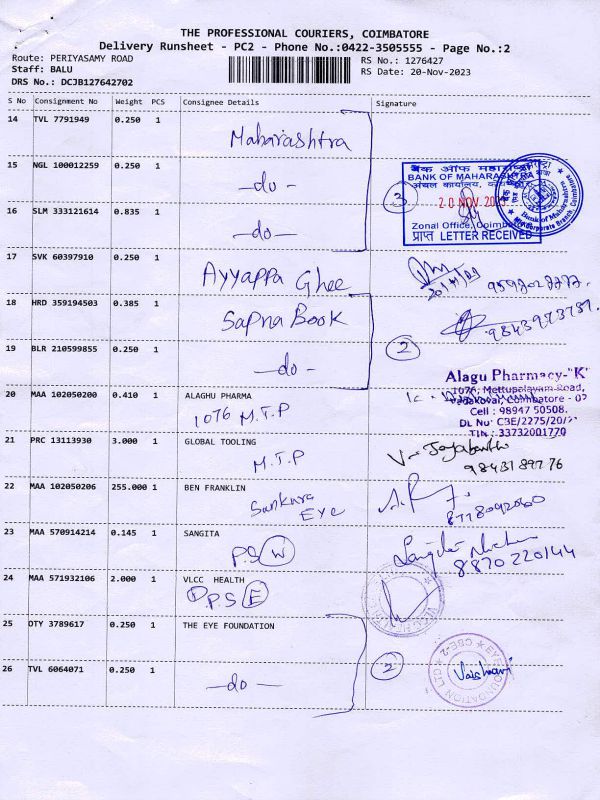 THE PROFESSIONAL COURIERS, COIMBATORE
Delivery Runsheet - PC2 - Phone No.:0422-3505555 - Page No.:2
Route: PERIYASAMY ROAD
Staff: BALU
DRS No.: DCJB127642702
RS No.: 1276427
RS Date: 20-Nov-2023
S No Consignment No Weight PCS Consignee Details Signature
14 TVL 7791949 0.250 1
Maharashtra
15 NGL 100012259 0.250 1
-do-
3
BANK OF MAHARASHTRA
20 NOV
Zonal Office, Coimbatore
प्राप्त LETTER RECEIVED
Bank of Maharashtra
16 SLM 333121614 0.835 1
-do-
17 SVK 60397910 0.250 1
Ayyappa Ghee
18 HRD 359194503 0.385 1
Sapna Book
19 BLR 210599855 0.250 1
-do-
2
20 MAA 102050200 0.410 1 ALAGHU PHARMA
1076 M.T.P
Alagu Pharmacy-"K"
1076, Mettupalayam Road,
Coimbatore - 02
Cell : 98947 50508.
DL No: CBE/2275/20/21
TIN : 33732001770
21 PRC 13113930 3.000 1 GLOBAL TOOLING
M.T.P
22 MAA 102050206 255.000 1 BEN FRANKLIN
Sankara
Eye
23 MAA 570914214 0.145 1 SANGITA
P.S W
8870220144
24 MAA 571932106 2.000 1 VLCC HEALTH
P.S E
25 OTY 3789617 0.250 1 THE EYE FOUNDATION
26 TVL 6064071 0.250 1
-do-
2
EYE FOUNDATION LTD CBE-2
Vaishnavi